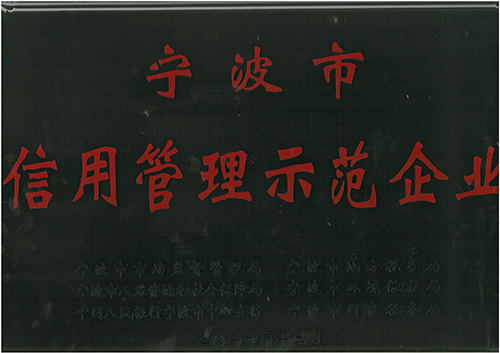 宁波市
信用管理示范企业
宁波市市场监督管理局 宁波市地方税务局
宁波市人力资源和社会保障局 宁波市环境保护局
中国人民银行宁波市中心支行 宁波市国家税务局
二〇一七年十二月